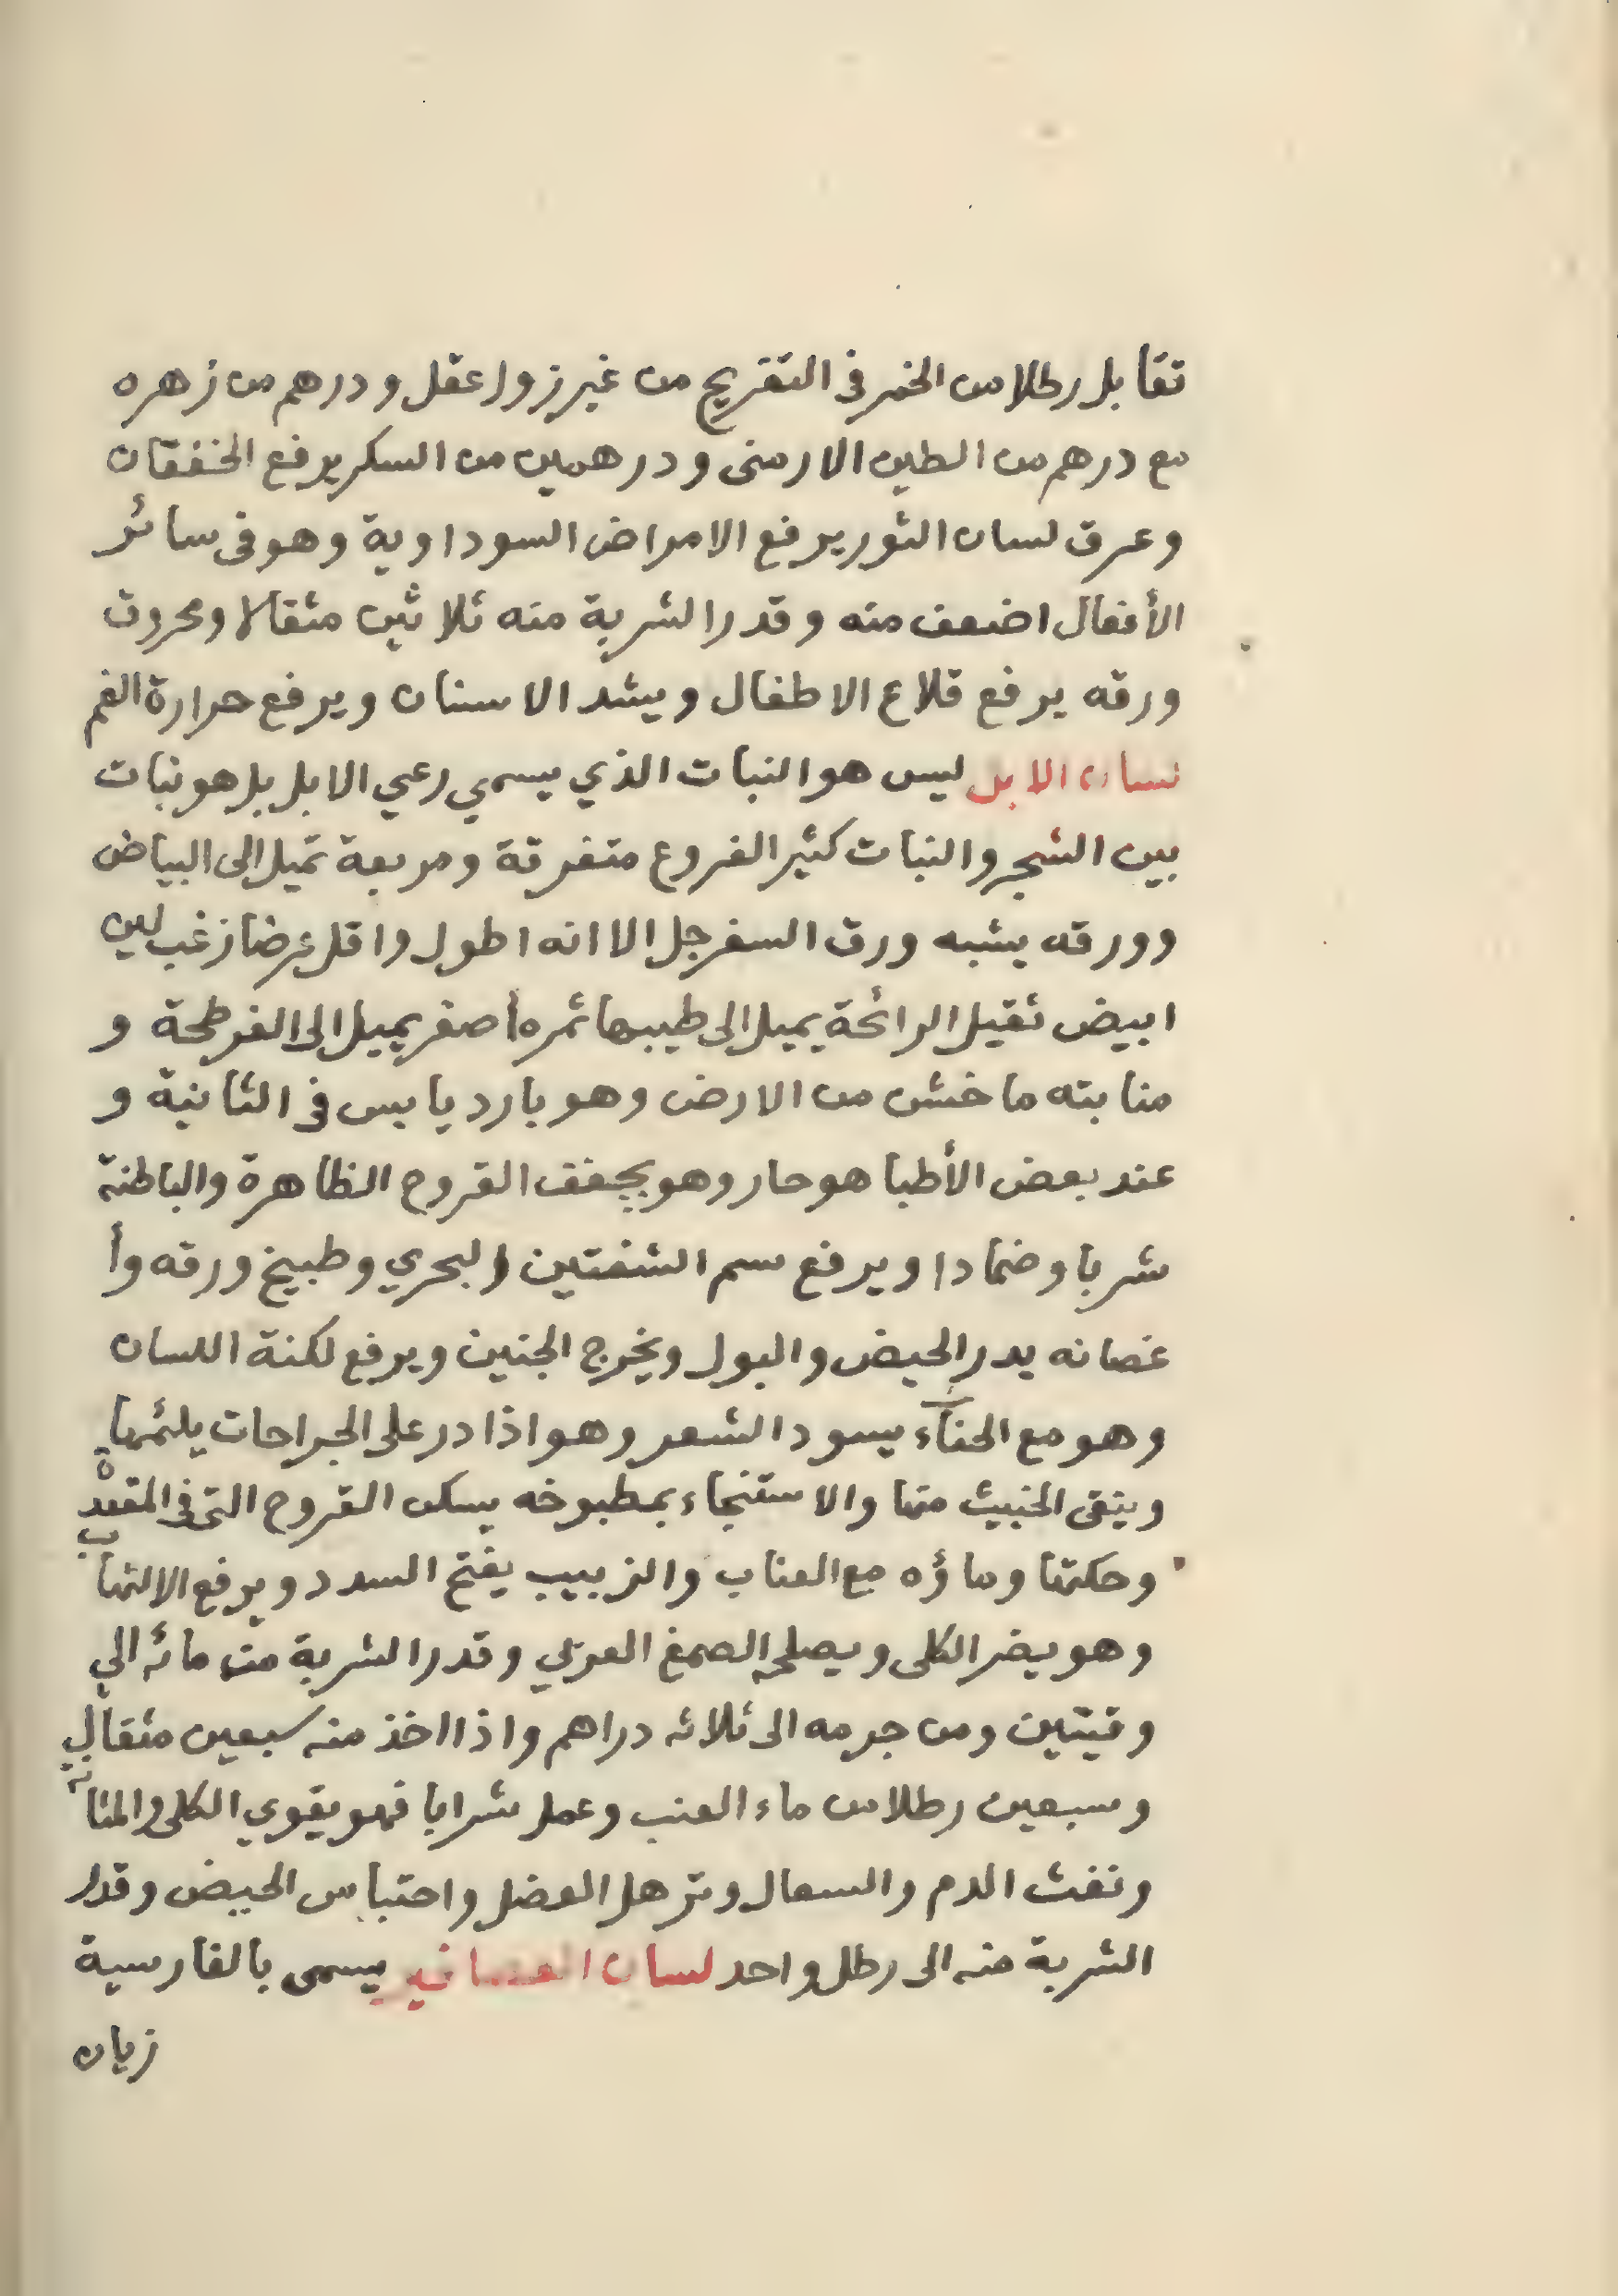 تقابل رطلا من الخمر فى التفريح من غير زوا عقل و درهم من زهره
مع درهم من الطين الارمنى و درهمين من السكر يرفع الخفقان
وعرق لسان الثور يرفع الامراض السوداوية وهو فى سائر
الأفعال اضعف منه وقدر الشربة منه ثلاثين مثقالا ومحروق
ورقه يرفع قلاع الاطفال ويشد الاسنان ويرفع حرارة الفم
لسان الابل ليس هو النبات الذي يسمي رعي الابل بل هو نبات
بين الشجر والنبات كثير الفروع متفرقة ومربعة تميل الى البياض
وورقه يشبه ورق السفرجل الا انه اطول واقل عرضا زغب لين
ابيض ثقيل الرائحة يميل الى طيب بها ثمره أصفر يميل الى الفرطحة و
منابته ما خشن من الارض وهو بارد يابس فى الثانية و
عند بعض الأطبا هو حار وهو يجفف القروح الظاهرة والباطنة
شربا وضمادا ويرفع سم الشفتين البحري وطبيخ ورقه وأ
غصانه يدر الحيض والبول ويخرج الجنين ويرفع لكنة اللسان
وهو مع الحناء يسود الشعر وهو اذا در على الجراحات يلئمها
وينقى الخبيث منها والاستنجاء بمطبوخه يسكن القروح التى فى المقعدة
وحكتها وماؤه مع العناب والزبيب يفتح السدد ويرفع الالتهاب
وهو يضر الكلى ويصلحه الصمغ العربي وقدر الشربة من مائه الي
وقيتين ومن جرمه الى ثلاثه دراهم واذا اخذ منه سبعين مثقال
وسبعين رطلا من ماء العنب وعمل شرابا فهو يقوي الكلى والمثانة
ونفث الدم والسعال وترهل العضل واحتباس الحيض وقدر
الشربة منه الى رطل واحد لسان العصافير يسمى بالفارسية
زبان